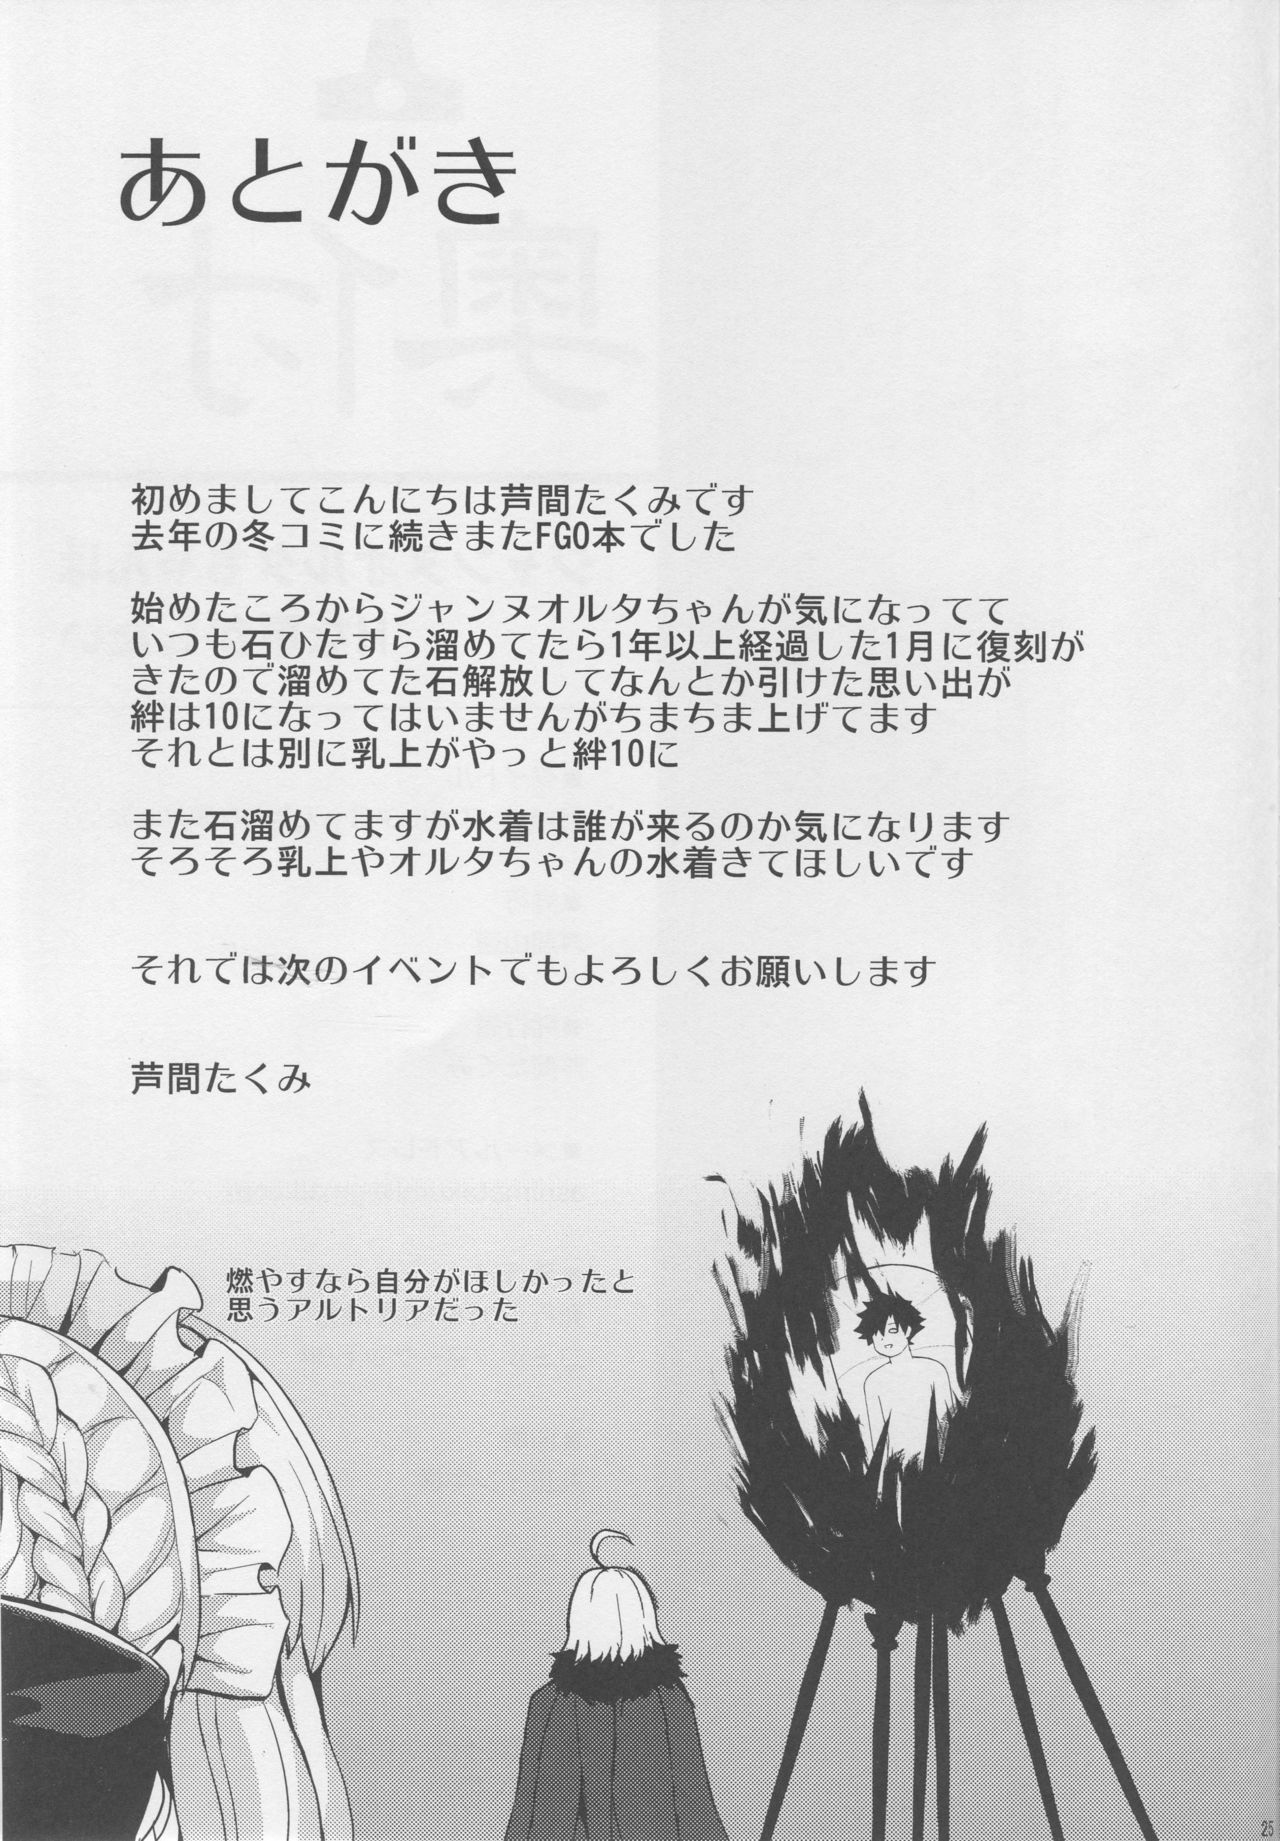 あとがき
初めましてこんにちは芦間たくみです
去年の冬コミに続きまたFGO本でした
始めたころからジャンヌオルタちゃんが気になってて
いつも石ひたすら溜めてたら1年以上経過した1月に復刻が
きたので溜めてた石解放してなんとか引けた思い出が
絆は10になってはいませんがちまちま上げてます
それとは別に乳上がやっと絆10に
また石溜めてますが水着は誰が来るのか気になります
そろそろ乳上やオルタちゃんの水着きてほしいです
それでは次のイベントでもよろしくお願いします
芦間たくみ
燃やすなら自分がほしかったと
思うアルトリアだった
25